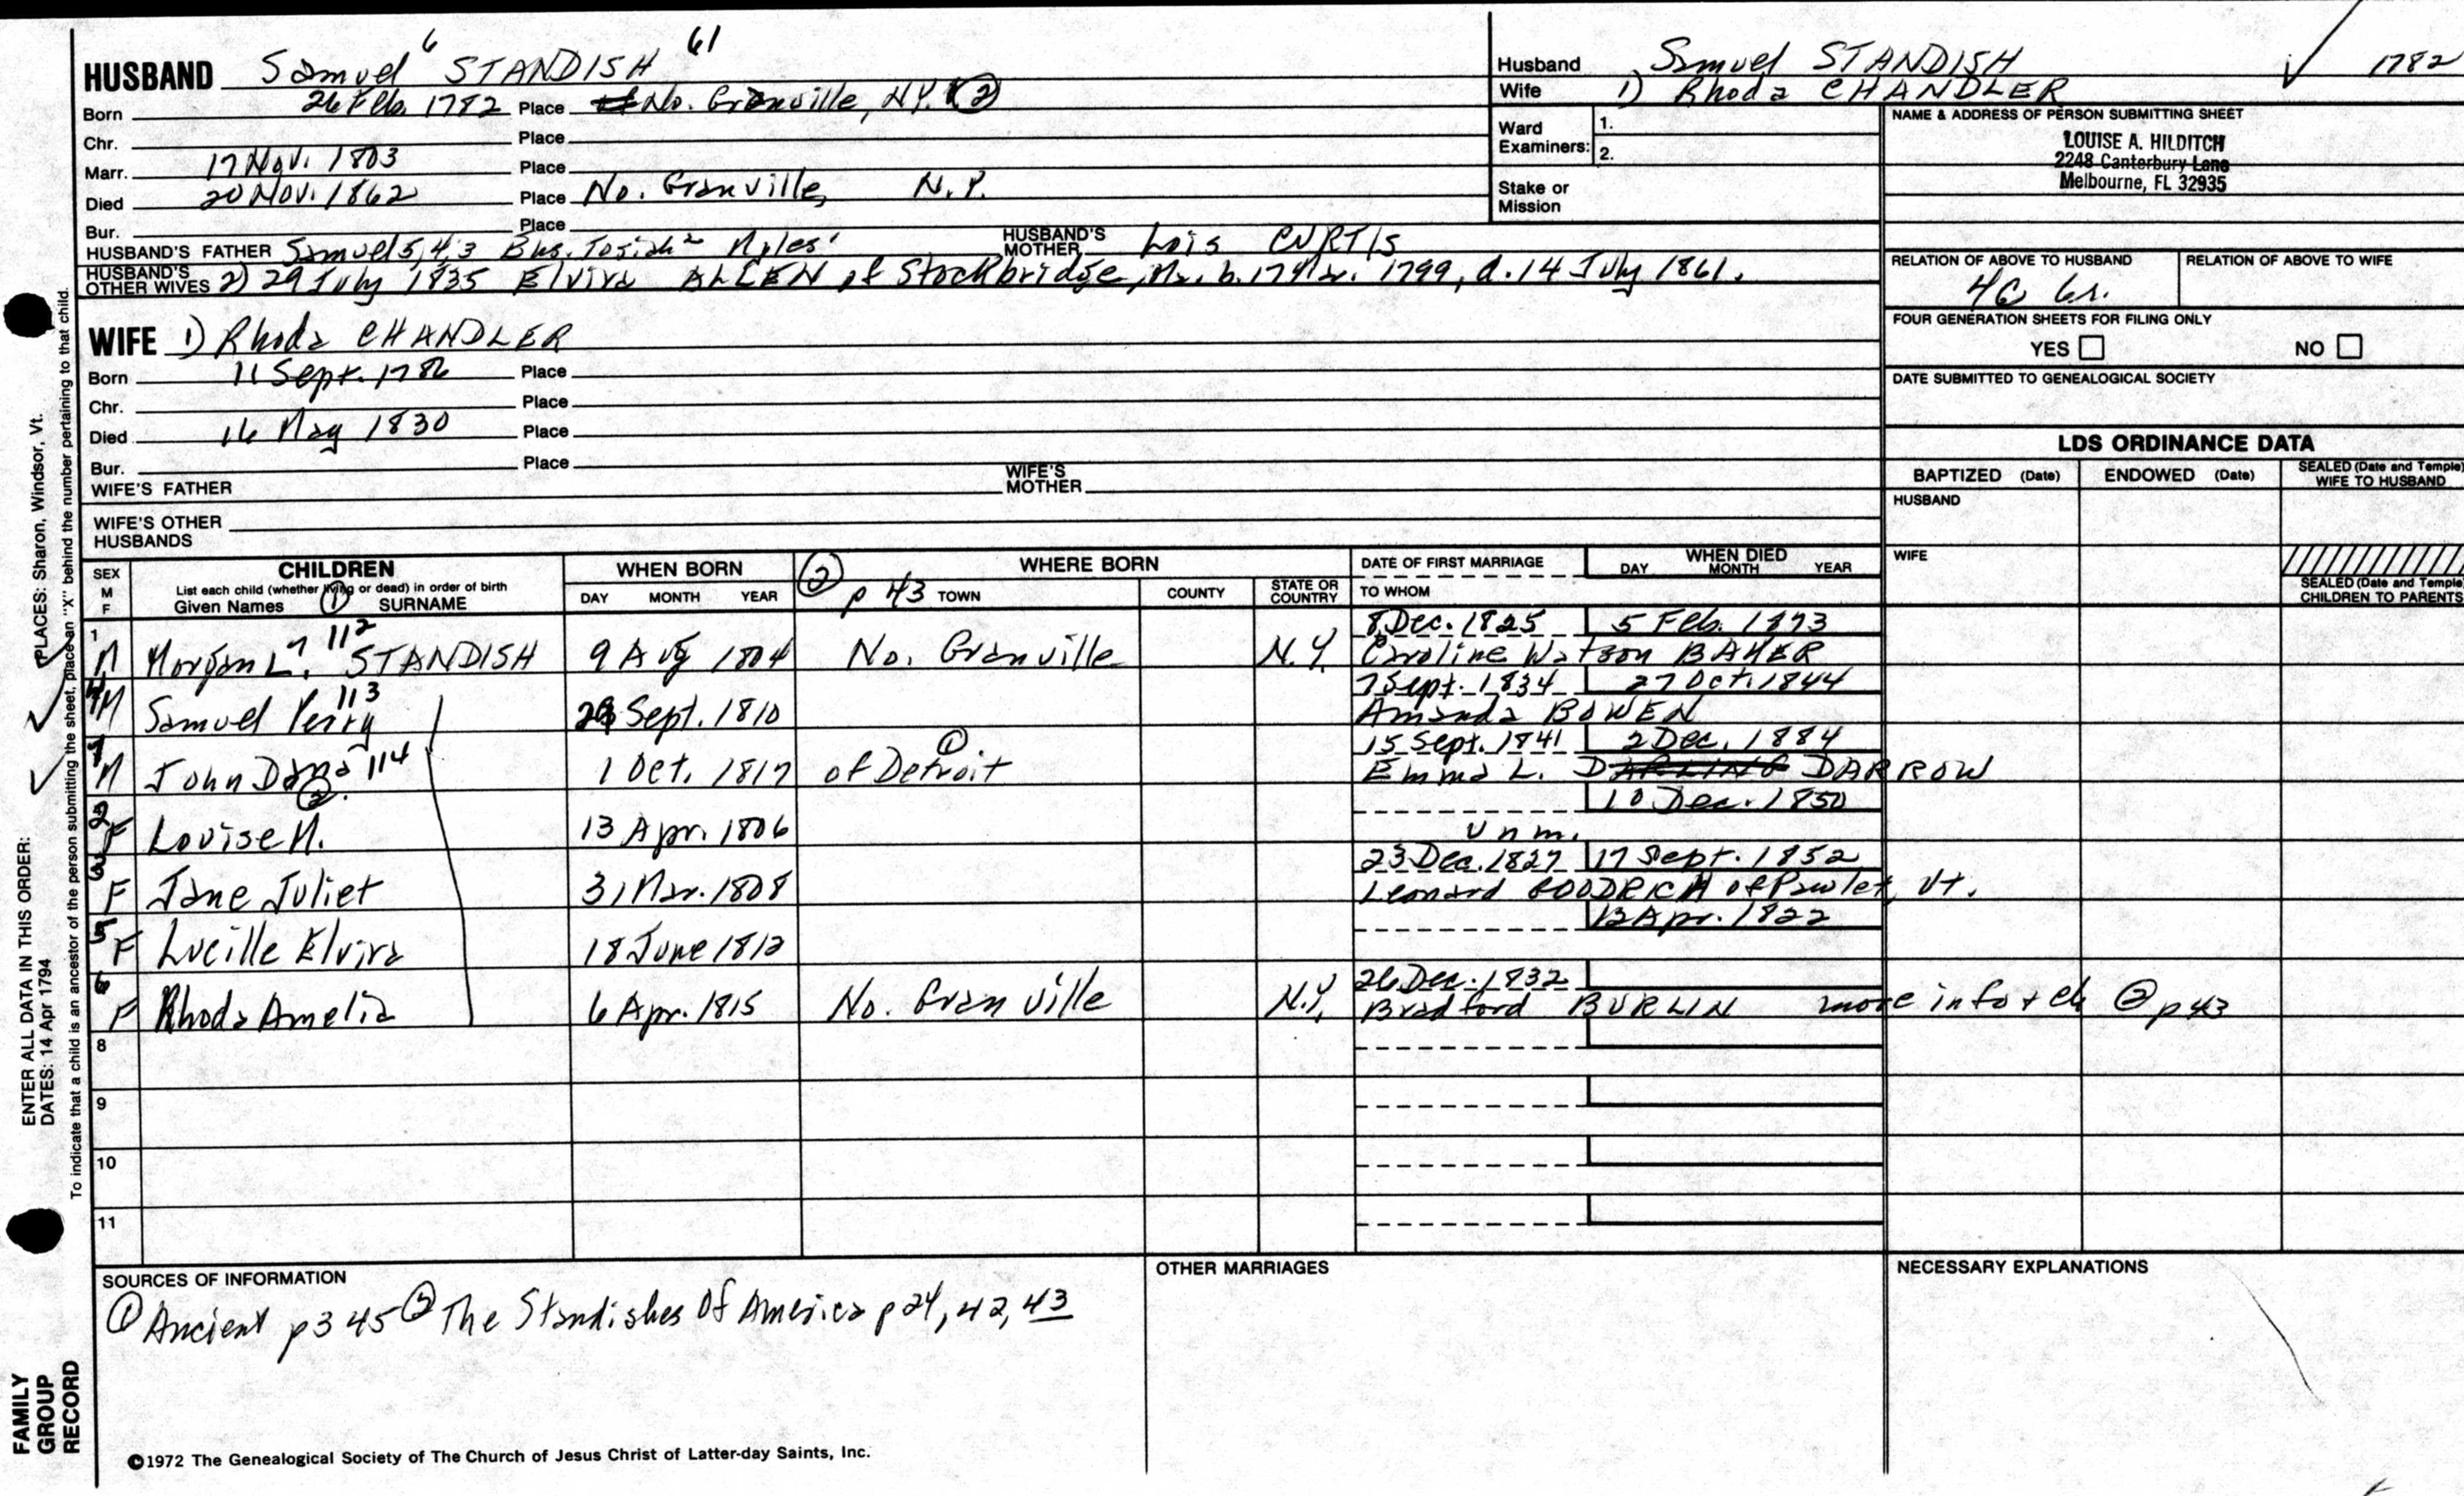 HUSBAND Samuel 6 STANDISH 61
Born 26 Feb. 1782 Place No. Granville, N.Y. (2)
Chr. Place
Marr. 17 Nov. 1803 Place
Died 20 Nov. 1862 Place No. Granville, N.Y.
Bur. Place
HUSBAND'S FATHER Samuel 5, 4, 3 Josiah 2 Myles 1 HUSBAND'S MOTHER Lois CURTIS
HUSBAND'S OTHER WIVES 2) 29 July 1835 Elvira ALLEN of Stockbridge, 1799, d. 14 July 1861.
WIFE 1) Rhoda CHANDLER
Born 11 Sept. 1786 Place
Chr. Place
Died 16 May 1830 Place
Bur. Place
WIFE'S FATHER WIFE'S MOTHER
WIFE'S OTHER HUSBANDS
Husband Samuel STANDISH 1782
Wife 1) Rhoda CHANDLER
Ward Examiners: 1.
2.
Stake or Mission
NAME & ADDRESS OF PERSON SUBMITTING SHEET
LOUISE A. HILDITCH
2248 Canterbury Lane
Melbourne, FL 32935
RELATION OF ABOVE TO HUSBAND RELATION OF ABOVE TO WIFE
4C 6r.
FOUR GENERATION SHEETS FOR FILING ONLY
YES NO
DATE SUBMITTED TO GENEALOGICAL SOCIETY
LDS ORDINANCE DATA
BAPTIZED (Date) ENDOWED (Date) SEALED (Date and Temple) WIFE TO HUSBAND
HUSBAND
WIFE
SEALED (Date and Temple) CHILDREN TO PARENTS
SEX M F
CHILDREN
List each child (whether living or dead) in order of birth
Given Names (1) SURNAME
WHEN BORN
DAY MONTH YEAR
(2) p 43 WHERE BORN
TOWN COUNTY STATE OR COUNTRY
DATE OF FIRST MARRIAGE
TO WHOM
WHEN DIED
DAY MONTH YEAR
8 Dec. 1825 5 Feb. 1893
1 M Morgan L. 7 112 STANDISH 9 Aug 1804 No. Granville N.Y. Caroline Watson BAKER
7 Sept. 1834 27 Oct. 1844
4 M Samuel Perry 113 Sept. 1810 Amanda BOWEN
15 Sept. 1841 2 Dec. 1884
7 M John Dana 114 (2) 1 Oct. 1817 of Detroit (1) Emma L. DARLING DARROW
10 Dec. 1850
2 F Louise M. 13 Apr. 1806 unm.
23 Dec. 1827 17 Sept. 1852
3 F Jane Juliet 31 Mar. 1808 Leonard GOODRICH of Pawlet, Vt.
Apr. 1822
5 F Lucille Elvira 18 June 1812
26 Dec. 1832
6 F Rhoda Amelia 6 Apr. 1815 No. Granville N.Y. Bradford BURLIN more info + ch (2) p 43
8
9
10
11
SOURCES OF INFORMATION
(1) Ancient p 345 (2) The Standishes Of America p 24, 42, 43
OTHER MARRIAGES
NECESSARY EXPLANATIONS
©1972 The Genealogical Society of The Church of Jesus Christ of Latter-day Saints, Inc.
FAMILY GROUP RECORD
ENTER ALL DATA IN THIS ORDER:
DATES: 14 Apr 1794
PLACES: Sharon, Windsor, Vt.
To indicate that a child is an ancestor of the person submitting the sheet, place an "X" behind the number pertaining to that child.